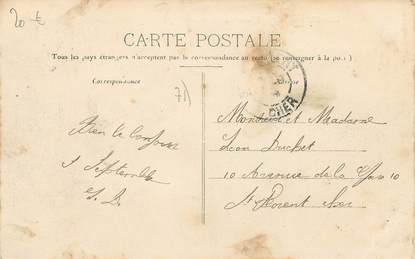 20 €
CARTE POSTALE
Tous les pays étrangers n'acceptent pas la correspondance au recto (se renseigner à la poste)
Correspondance
Adresse
78)
CHER
Bien le bonjour
5 Septembre
Monsieur et Madame
Léon Duchet
10 Avenue de la Gare 10
St Florent Cher